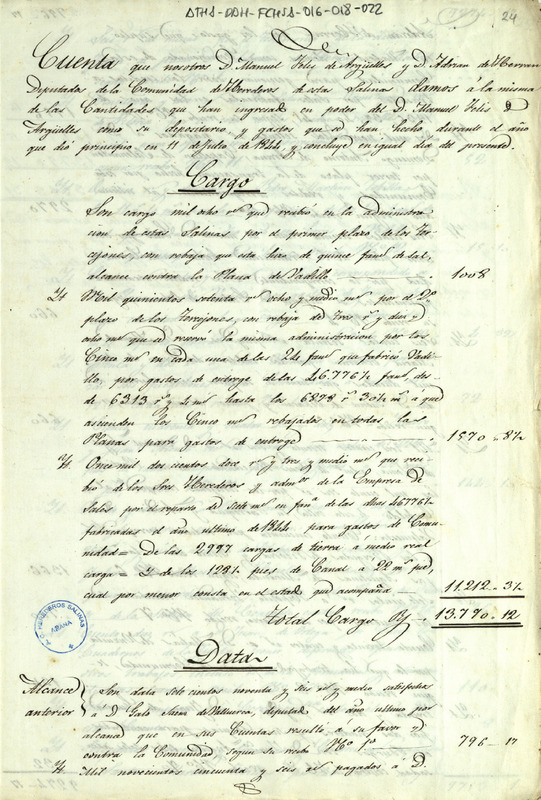 ATHA-DDH-FCHSA-016-018-022
24
Cuenta que nosotros Dn. Manuel Felis de Argüelles y D. Adrian de Herran
Diputados de la Comunidad de Herederos de estas Salinas damos á la misma
de las Cantidades que han ingresado en poder del D. Manuel Felis D
Argüelles como su depositario y gastos que se han hecho durante el año
que dió principio en 11 de Julio de 1844, y concluye en igual dia del presente.
Cargo
Son cargo mil ocho rs. que recibió en la administra-
cion de estas Salinas por el primer plazo de los Tor-
rejones, con rebaja que esta hizo de quince fans. de sal,
alcance contra la Plana de Vadillo 1008
Yt. Mil quinientos setenta rs. ocho y medio ms. por el 2º
plazo de los torrejones, con rebaja de tres rs. y diez y
ocho ms. que se reservó la misma administracion por los
Cinco ms. en cada una de las 24 fans. que fabricó Vadi-
llo, por gastos de entroge de las 46776½ fans. des-
de 6313 rs. y 4 ms. hasta los 6878 rs. 30½ ms. á que
ascienden los Cinco ms. rebajados en todas las
Planas para gastos de entroge 1570-8½
Yt. Once mil dos cientos doce rs. y tres y medio ms. que reci-
bió de los Sres. Herederos y admor. de la Empresa de
Sales por el reparto de siete ms. en fana. de las dhas. 46776½
fabricadas el año ultimo de 1844 para gastos de Comu-
nidad = De las 2997 cargas de tierra á medio real
carga = Y de los 1281 pies de Canal á 22 ms. pie,
cual por menor consta en el estado que acompaña 11.212-3½
Total Cargo Rs. 13.790-12
T. C. HEREDEROS SALINAS
AÑANA
Data
Alcance
anterior
Son data sete cientos noventa y seis rs. y medio satisfechos
á D. Galo Saenz de Valluerca, diputado del año ultimo por
alcance que en sus Cuentas resultó á su favor y
contra la Comunidad, segun su recibo Nº 1º 796-17
Yt. Mil novecientos cincuenta y seis rs. pagados á D.